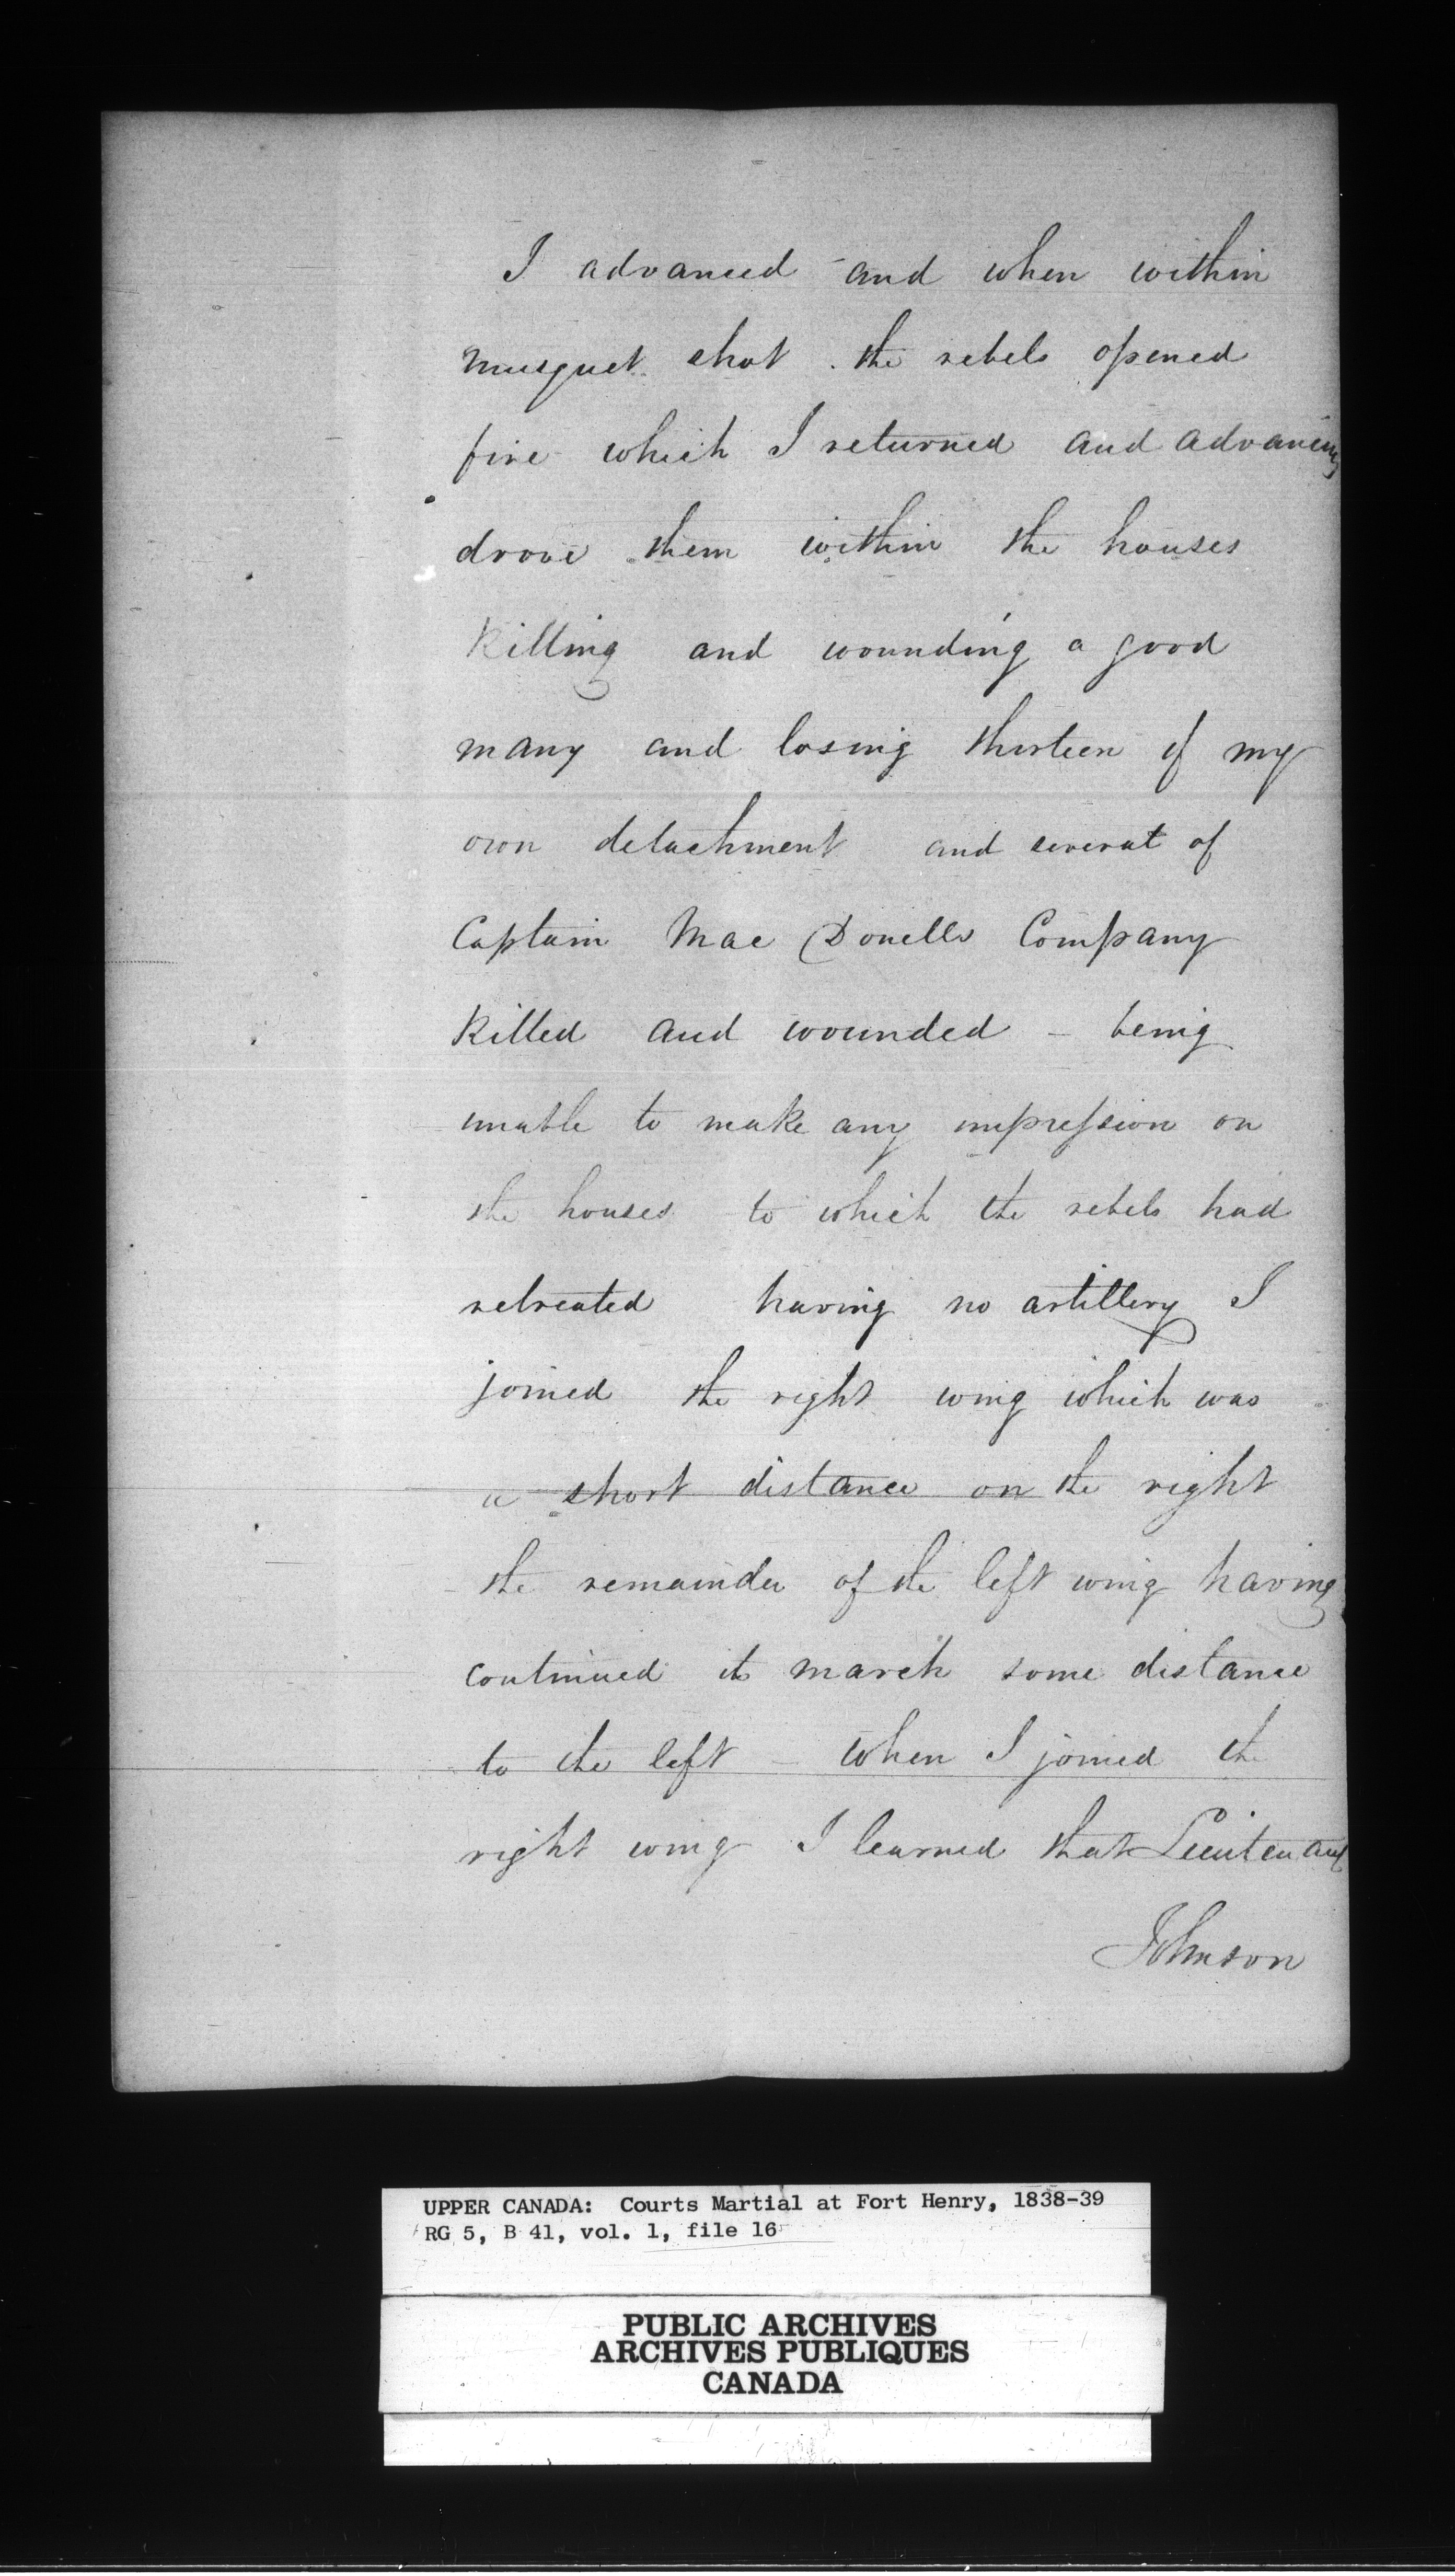 I advanced and when within
musquet shot the rebels opened
fire which I returned and advancing
drove them within the houses
Killing and wounding a good
many and losing thirteen of my
own detachment and several of
Captain Mac Donells Company
Killed and wounded – being
unable to make any impression on
the houses to which the rebels had
retreated having no artillery I
joined the right wing which was
a short distance on the right
the remainder of the left wing having
continued its march some distance
to the left – when I joined the
right wing I learned that Lieutenant
Johnson
UPPER CANADA: Courts Martial at Fort Henry, 1838-39
RG 5, B 41, vol. 1, file 16
PUBLIC ARCHIVES
ARCHIVES PUBLIQUES
CANADA